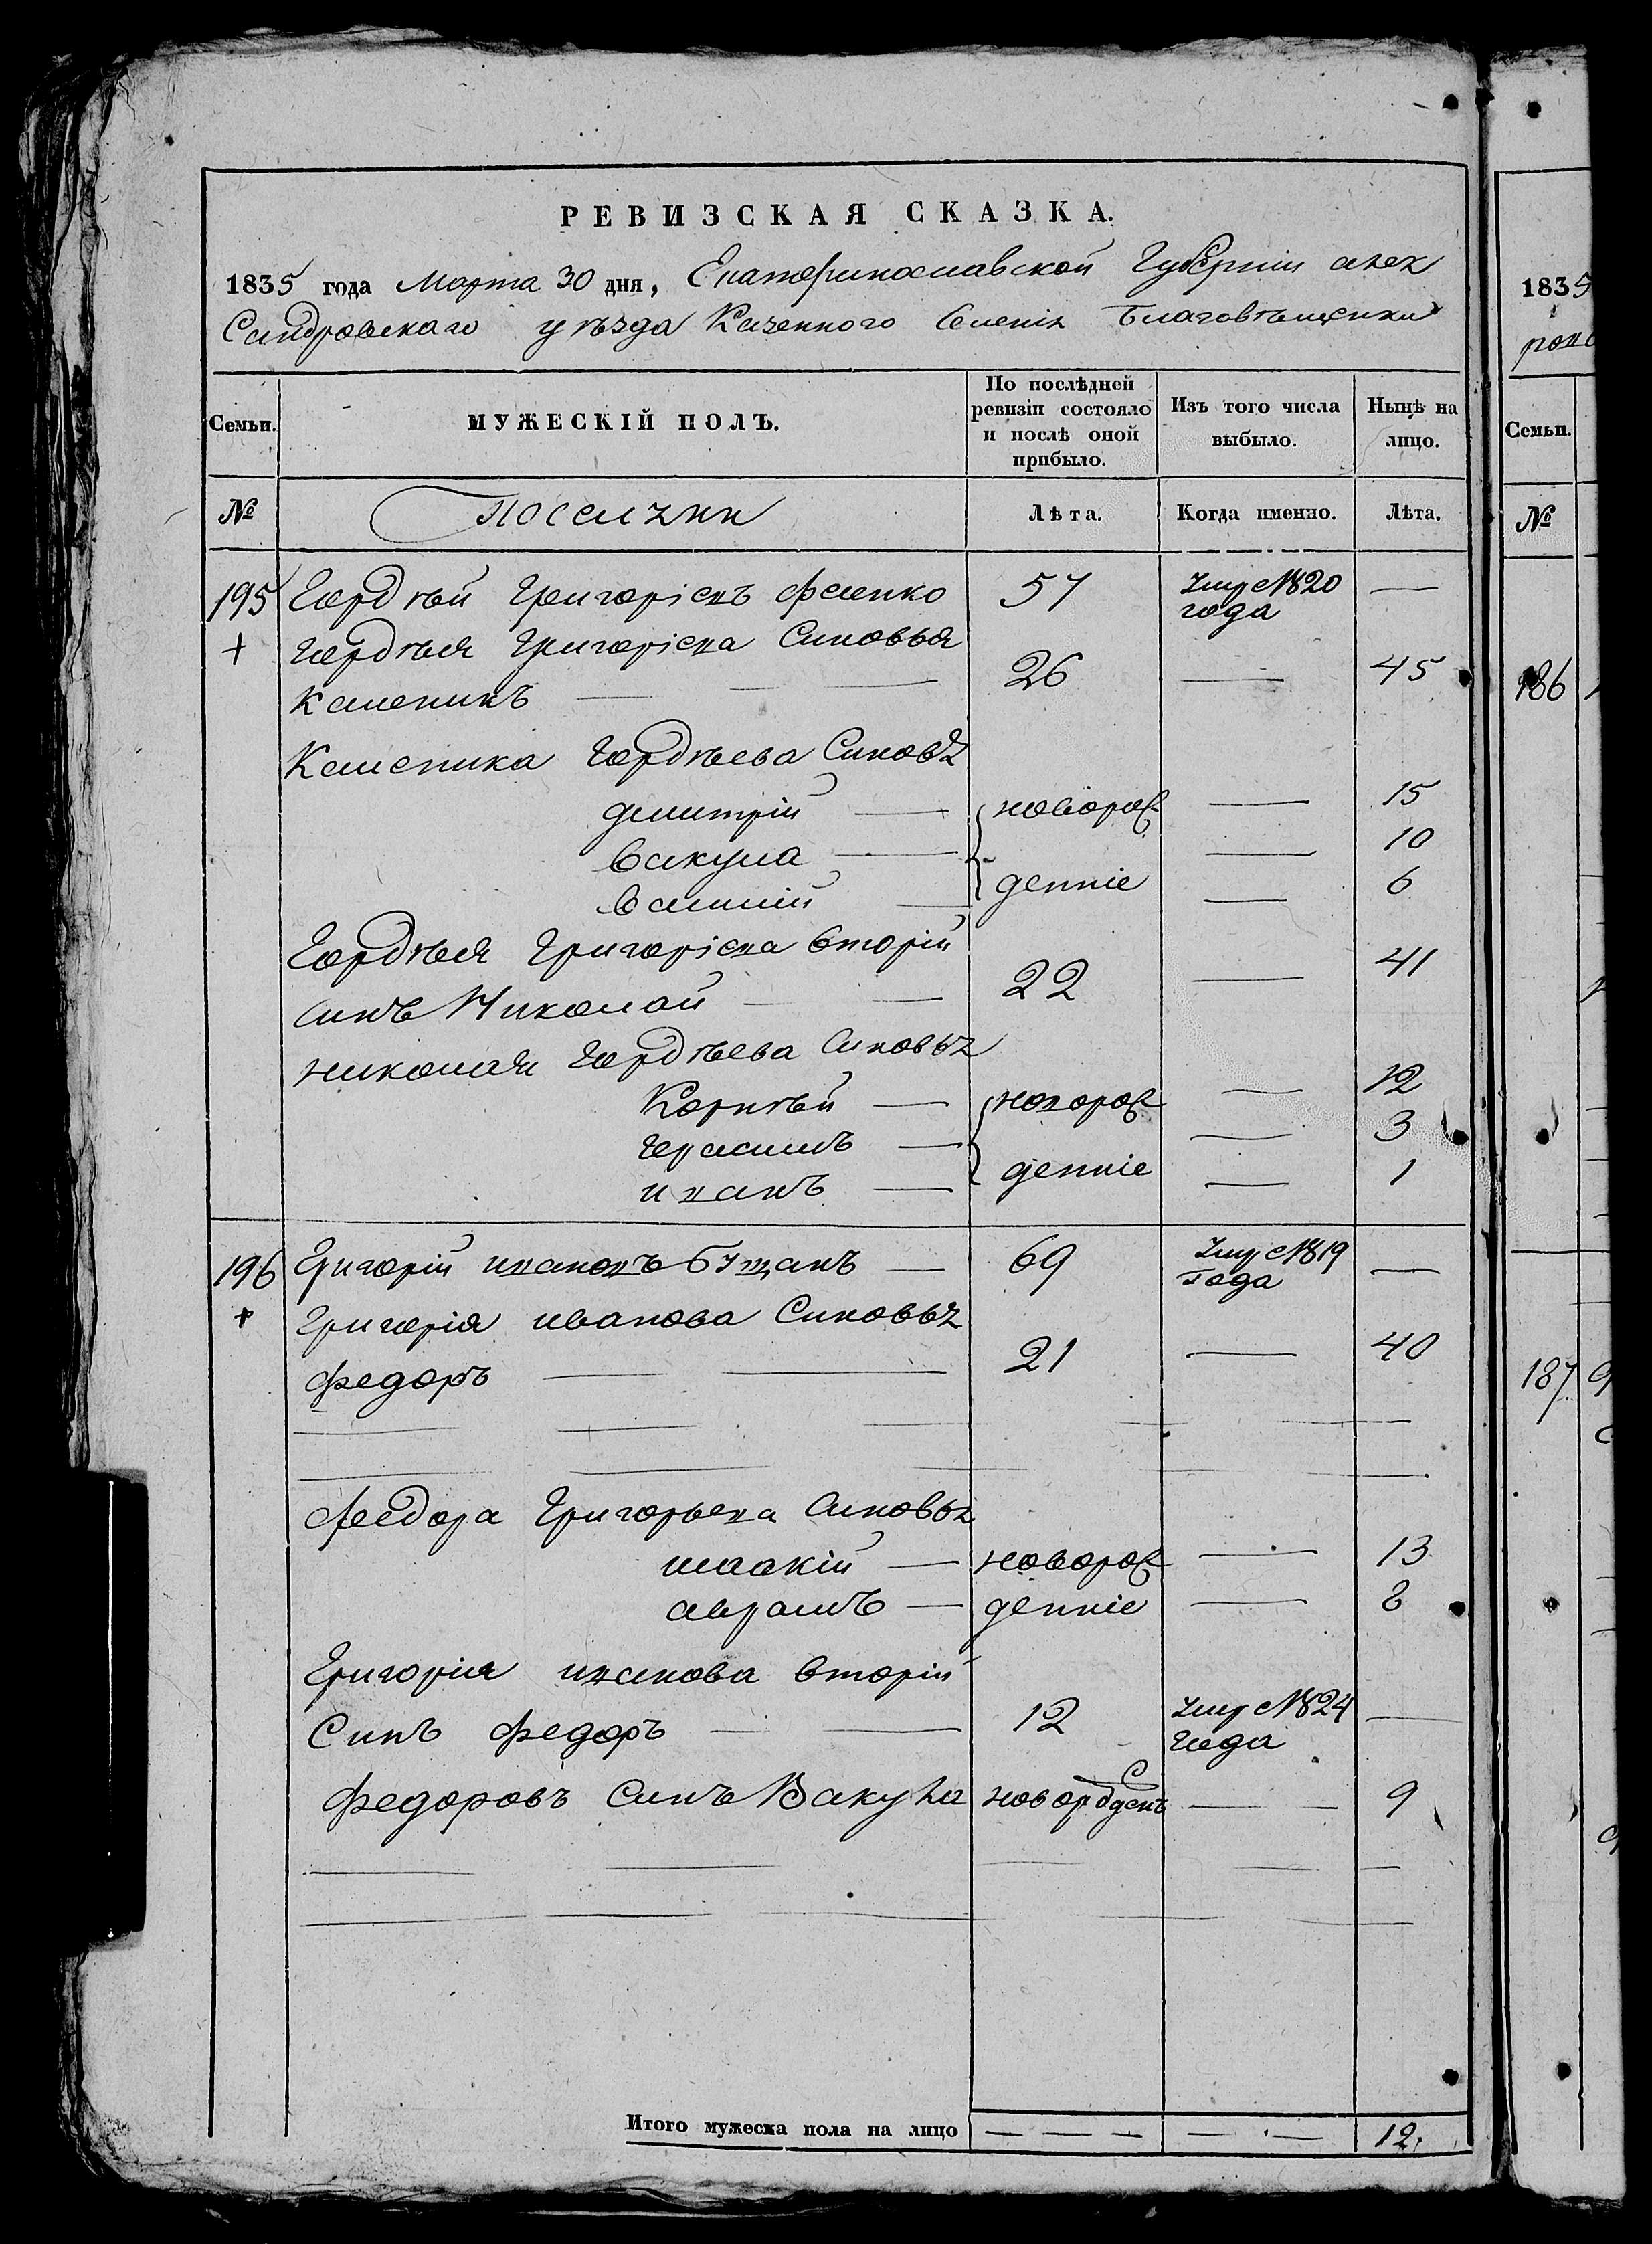 РЕВИЗСКАЯ СКАЗКА.
1835 года Марта 30 дня, Екатеринославской Губерніи алек
Сандровскаго уѣзда Казенного Селенія Благовѣщенки
Семьи. МУЖЕСКІЙ ПОЛЪ. По послѣдней ревизіи состояло и послѣ оной прибыло. Изъ того числа выбыло. Нынѣ на лицо.
№ Поселяни Лѣта. Когда именно. Лѣта.
195 Гордѣй Григоріевъ Фсенко 57 Умр 820 года —
+ Гордѣя Григоріева Синовья
Каленикъ — — — 26 — 45
Каленика Гордѣева Синовя
димитрій — новорож — 15
Вакула — — 10
Василій — денніе — 6
Гордѣея Григоріева вторій
синъ Николай — — 22 — 41
николая Гордѣева синовья
Корнѣй — новорож — 12
Герасимъ — — 3
иванъ — денніе — 1
196 Григорій ивановъ Бутанъ — 69 Умр 819 года —
+ Григорія иванова Синовья
Федоръ — — 21 — 40
Феодора Григорьева синовья
исаакій — новорож — 13
аврамъ — денніе — 8
Григорія иванова вторій
Синъ Федоръ — — 12 Умр 824 года —
Федоровъ Синъ Вакула новорожденъ — — 9
Итого мужеска пола на лицо — — — — — 12.
1835
Семьи.
№
186
187